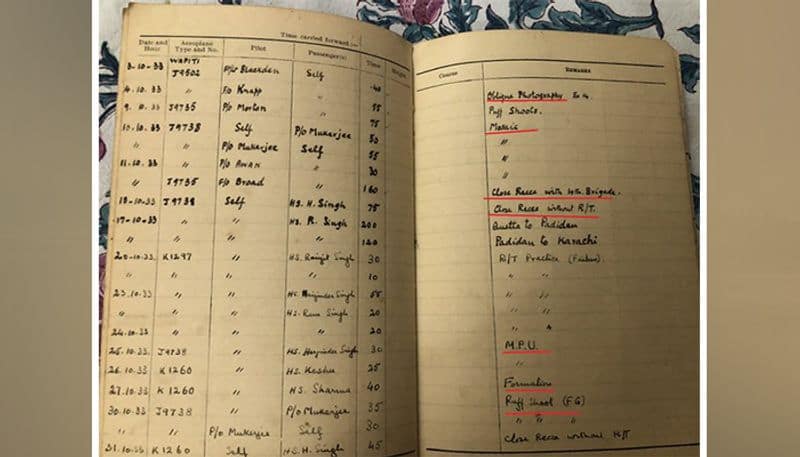 Time carried forward :—
Date and Hour Aeroplane Type and No. Pilot Passenger(s) Time Height
WAPITI
3-10-33 J9502 P/O Bearden Self
4.10.33 " F/O Knapp " .40
9.10.33 J9735 P/O Morton " 55
10.10.33 J9738 Self P/O Mukerjee 75
" " P/O Mukerjee Self 50
11.10.33 " P/O Awan " 55
" J9735 F/O Broad " 160
18-10-33 J9738 Self HS. H. Singh 75
17-10-33 " " HS. R. Singh 200
" " " " 120
20-10-33 K1297 " HS. Ranjit Singh 30
" " " " 10
23.10.33 " " HS. Harjinder Singh 55
" " " HS. Ram Singh 20
24.10.33 " " " 20
25.10.33 J9738 " HS. Harjinder Singh 30
26.10.33 K1260 " HS. 25
27.10.33 K1260 " HS. Sharma 40
30.10.33 J9738 " P/O Mukerjee 35
" P/O Mukerjee Self 30
31.10.33 K1260 Self HS. H. Singh 45
Course Remarks
Oblique Photography
Puff Shoots.
Mosaic
"
"
"
Close Recce with 4th Brigade.
Close Recce without R/T.
Quetta to Padidan
Padidan to Karachi
R/T Practice (Failure).
" "
" "
" "
" "
M.P.U.
"
Formation
Puff Shoot (F.G)
" " "
Close Recce without R/T